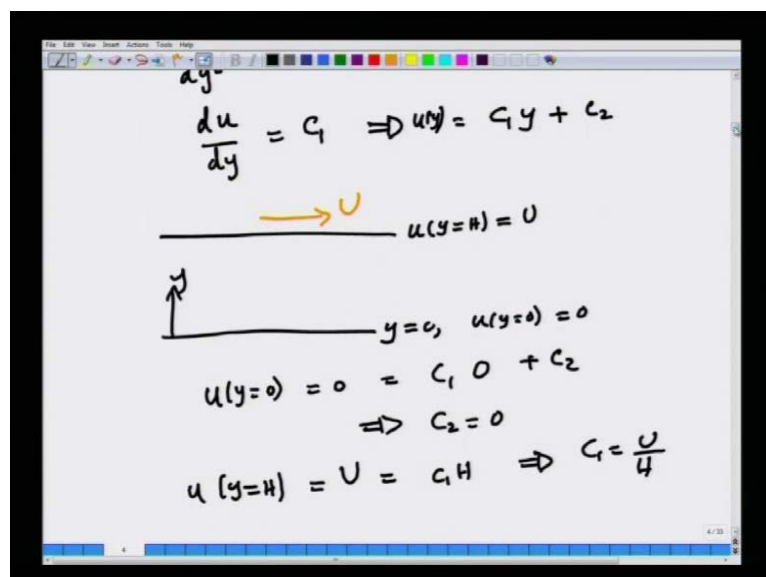 File Edit View Insert Actions Tools Help
dy²
du/dy = C₁ ⇒ u(y) = C₁ y + C₂
U
u(y=H) = U
y
y=0, u(y=0) = 0
u(y=0) = 0 = C₁ 0 + C₂
⇒ C₂ = 0
u(y=H) = U = C₁ H ⇒ C₁ = U/H
4/33
4